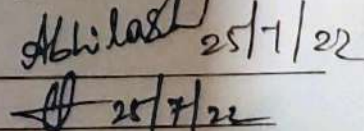 Abhilash 25/7/22
25/7/22